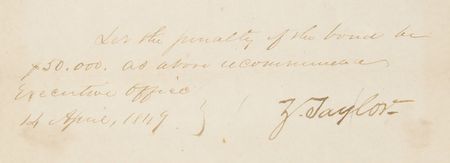 Let the penalty of the bond be
$30.000. as above recommended
Executive Office
14 April, 1849
Z. Taylor